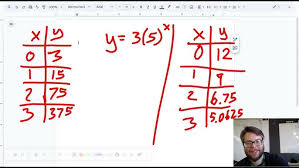 x y
0 3
1 15
2 75
3 375
y = 3(5)^x
x y
0 12
1 9
2 6.75
3 5.0625